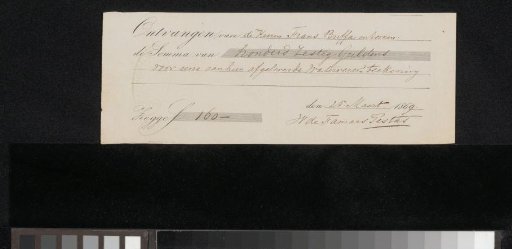 Ontvangen van de Heeren Frans Buffa en Zonen
de Somma van honderd zestig Guldens
voor eene aan hun afgeleverde Waterverw teekening
Zegge ƒ 160 —
den 25 Maart 1869
W de Famars Testas